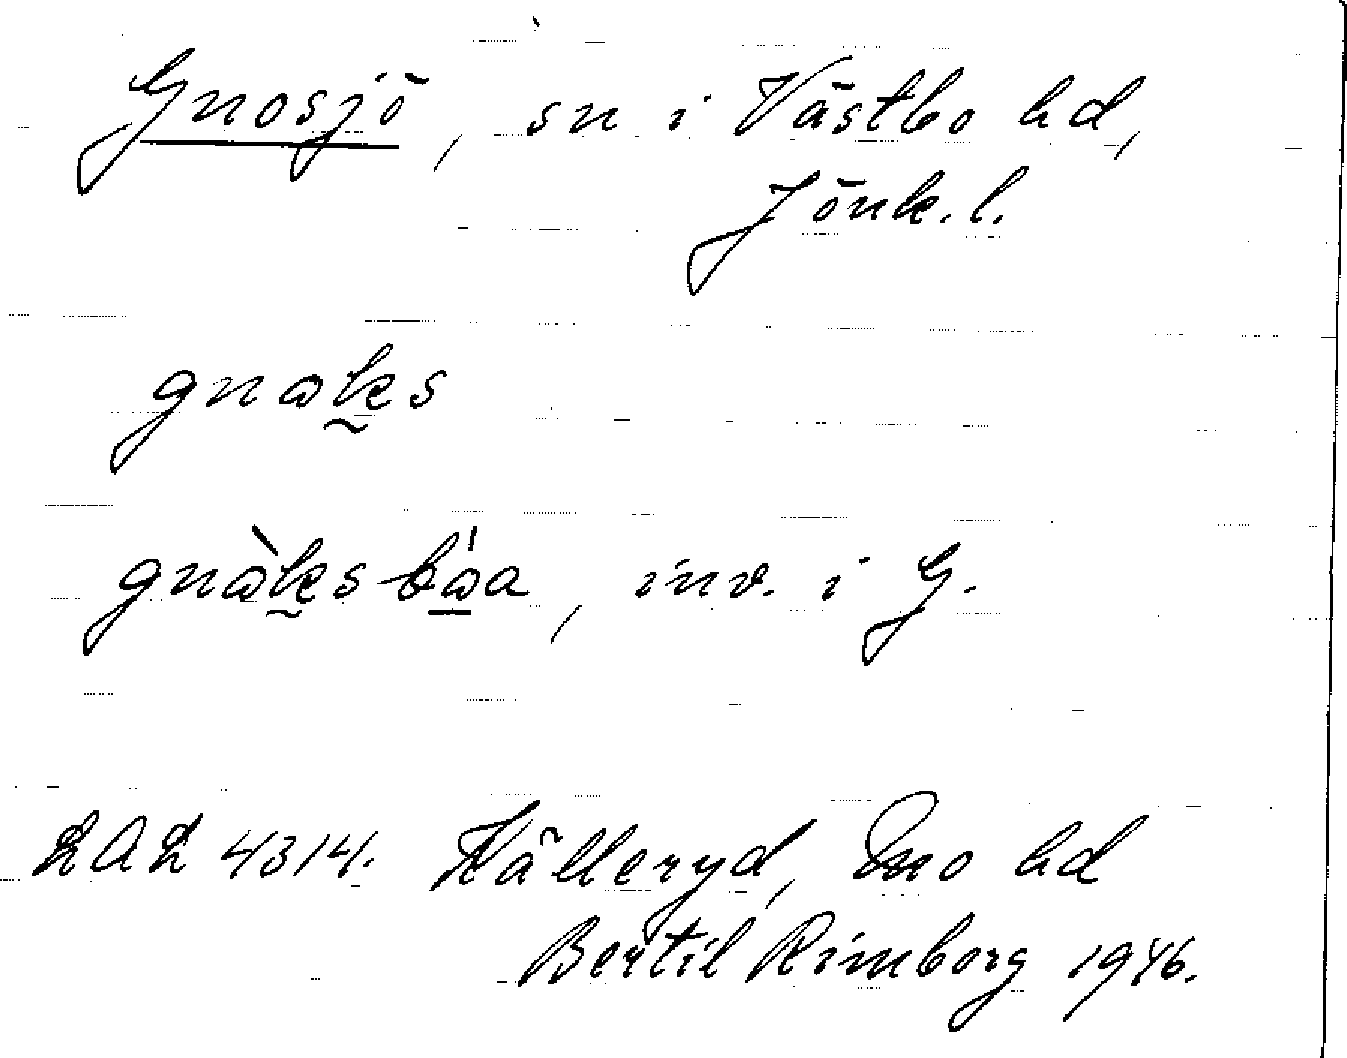 Gnosjö, sn i Västbo hd,
Jönk. l.
gnaks
gnàksbáa, inv. i G.
LAL 4314. Källeryd, Mo hd
Bertil Rimborg 1946.